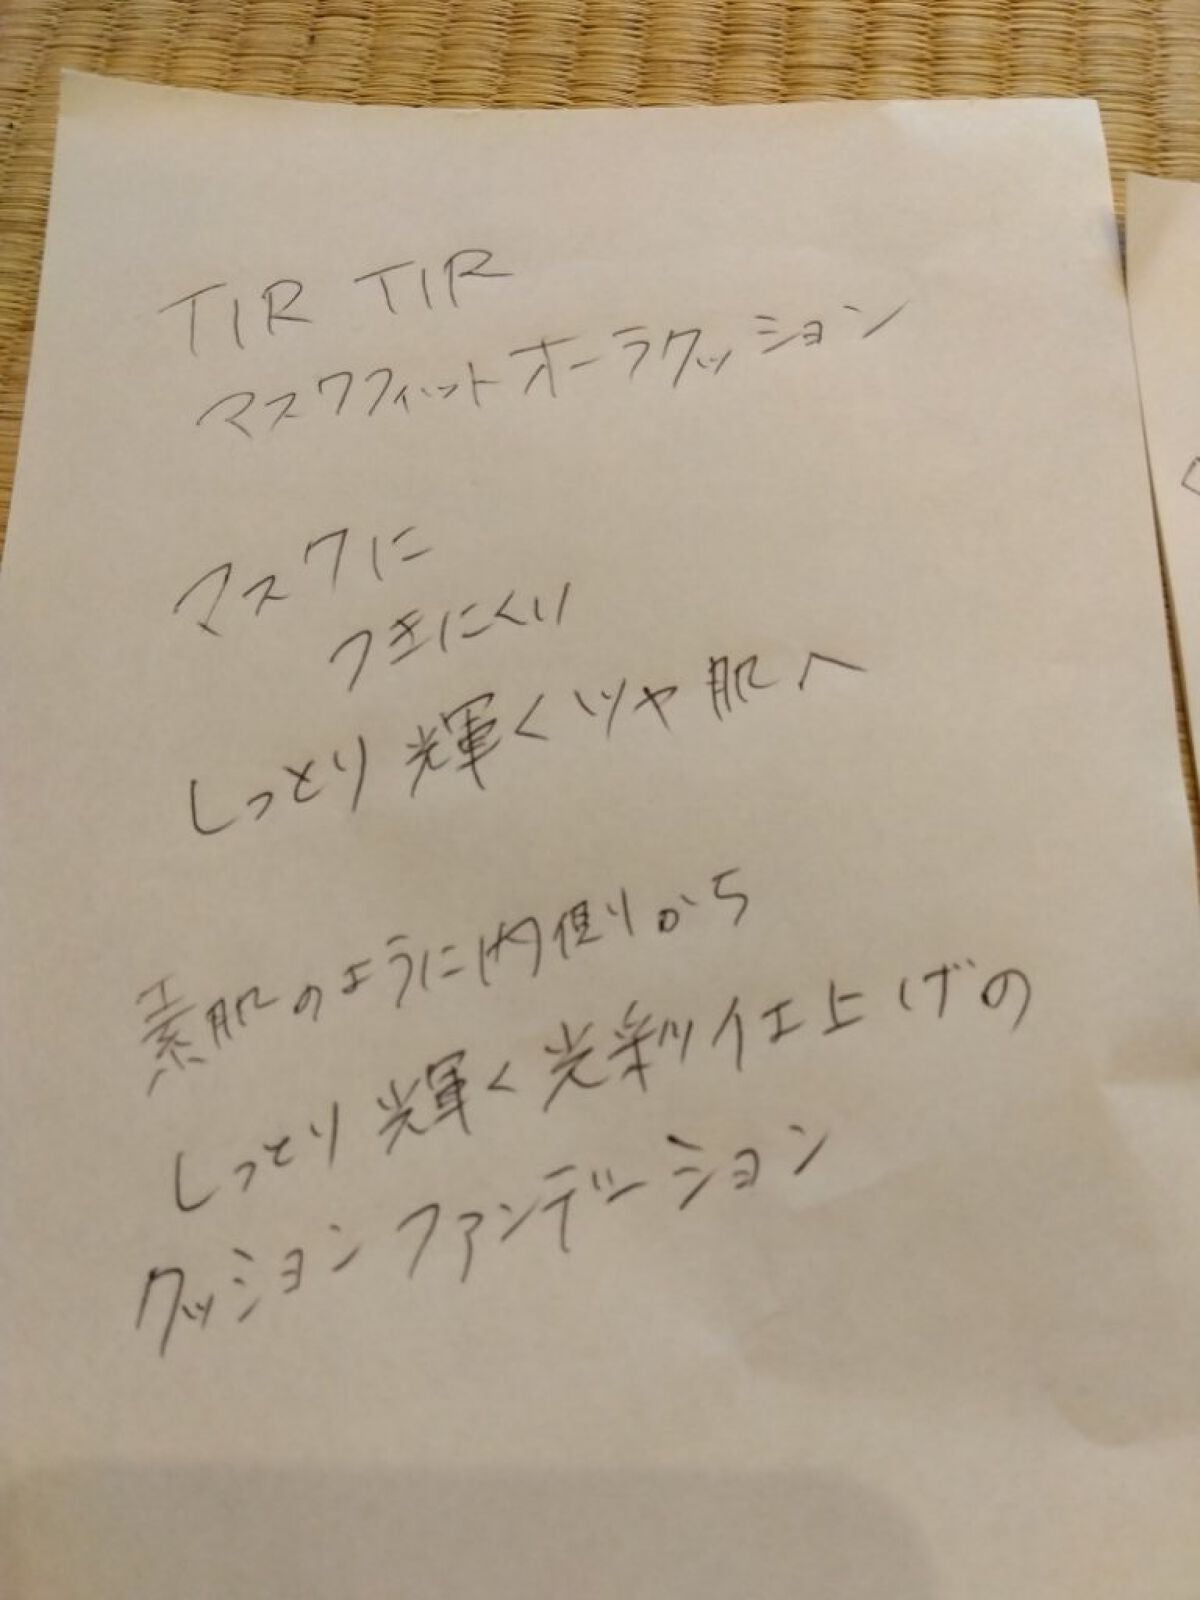 TIR TIR
マスクフィットオーラクッション
マスクに
つきにくい
しっとり輝くツヤ肌へ
素肌のように内側から
しっとり輝く光彩仕上げの
クッションファンデーション